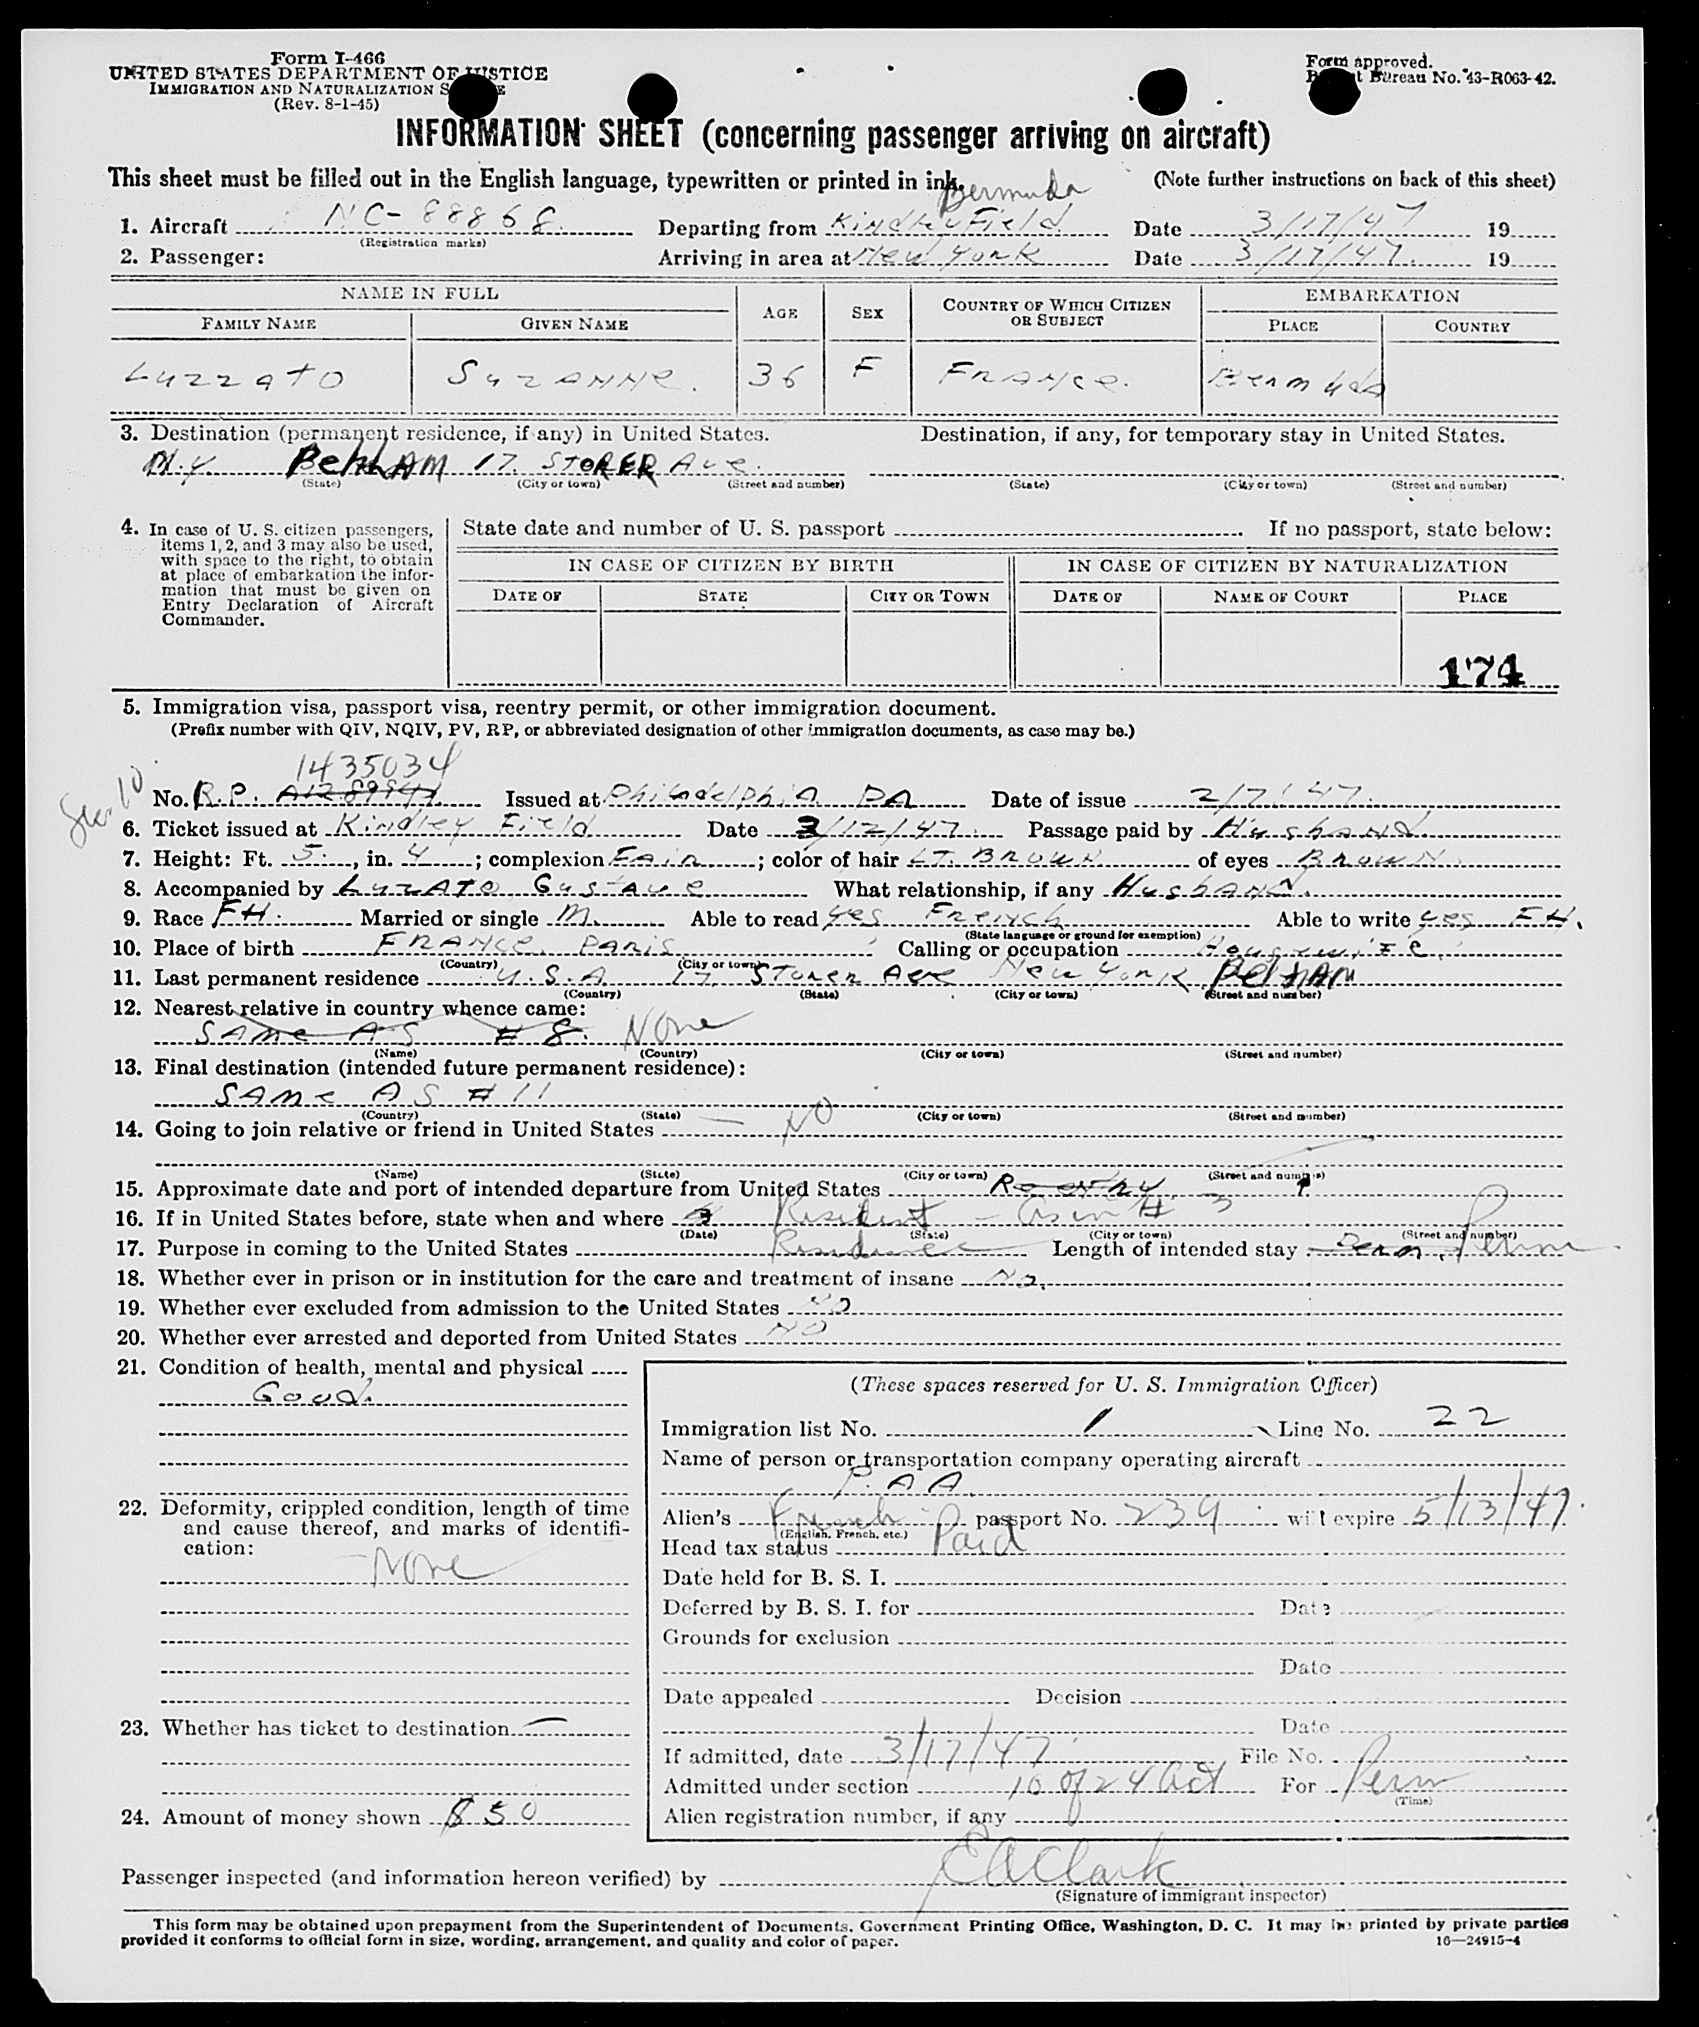 Form I-466
UNITED STATES DEPARTMENT OF JUSTICE
IMMIGRATION AND NATURALIZATION
(Rev. 8-1-45)
Form approved.
Bureau No. 43-R063-42.
INFORMATION SHEET (concerning passenger arriving on aircraft)
This sheet must be filled out in the English language, typewritten or printed in ink. (Note further instructions on back of this sheet)
Bermuda
1. Aircraft NC-88868 Departing from Kindley Field Date 3/17/47 19
(Registration marks)
2. Passenger: Arriving in area at New York Date 3/17/47. 19
NAME IN FULL AGE SEX COUNTRY OF WHICH CITIZEN OR SUBJECT EMBARKATION
FAMILY NAME GIVEN NAME PLACE COUNTRY
Luzzato Suzanne. 36 F France. Bermuda
3. Destination (permanent residence, if any) in United States. Destination, if any, for temporary stay in United States.
N.Y. PelHAM 17 STORER Ave.
(State) (City or town) (Street and number) (State) (City or town) (Street and number)
4. In case of U. S. citizen passengers, items 1, 2, and 3 may also be used, with space to the right, to obtain at place of embarkation the information that must be given on Entry Declaration of Aircraft Commander.
State date and number of U. S. passport If no passport, state below:
IN CASE OF CITIZEN BY BIRTH IN CASE OF CITIZEN BY NATURALIZATION
DATE OF STATE CITY OR TOWN DATE OF NAME OF COURT PLACE
174
5. Immigration visa, passport visa, reentry permit, or other immigration document.
(Prefix number with QIV, NQIV, PV, RP, or abbreviated designation of other immigration documents, as case may be.)
Sec. 10
1435034
No. R.P. Issued at Philadelphia PA Date of issue 2/7/47.
6. Ticket issued at Kindley Field Date 3/12/47. Passage paid by Husband.
7. Height: Ft. 5., in. 4; complexion Fair; color of hair LT. Brown of eyes Brown.
8. Accompanied by Luzato Gustave What relationship, if any Husband.
9. Race FH. Married or single M. Able to read yes French Able to write yes FH.
(State language or ground for exemption)
10. Place of birth France. Paris Calling or occupation Housewife.
(Country) (City or town)
11. Last permanent residence U.S.A. 17 Storer Ave New York PelHAM
(Country) (State) (City or town) (Street and number)
12. Nearest relative in country whence came:
Same AS #8. None
(Name) (Country) (City or town) (Street and number)
13. Final destination (intended future permanent residence):
Same AS #11
(Country) (State) (City or town) (Street and number)
14. Going to join relative or friend in United States No
(Name) (State) (City or town) (Street and number)
15. Approximate date and port of intended departure from United States
16. If in United States before, state when and where Resident - As in # 3
(Date) (State) (City or town) (Street and number)
17. Purpose in coming to the United States Residence Length of intended stay Perm. Perm
18. Whether ever in prison or in institution for the care and treatment of insane No.
19. Whether ever excluded from admission to the United States No
20. Whether ever arrested and deported from United States No
21. Condition of health, mental and physical
Good.
22. Deformity, crippled condition, length of time and cause thereof, and marks of identification:
None
23. Whether has ticket to destination —
24. Amount of money shown $50
(These spaces reserved for U. S. Immigration Officer)
Immigration list No. 1 Line No. 22
Name of person or transportation company operating aircraft
P.A.A.
Alien's French passport No. 239 will expire 5/13/47.
(English, French, etc.)
Head tax status Paid
Date held for B. S. I.
Deferred by B. S. I. for Date
Grounds for exclusion
Date
Date appealed Decision
Date
If admitted, date 3/17/47 File No.
Admitted under section 10 of 24 Act For Perm
(Time)
Alien registration number, if any
Passenger inspected (and information hereon verified) by EAClark
(Signature of immigrant inspector)
This form may be obtained upon prepayment from the Superintendent of Documents, Government Printing Office, Washington, D. C. It may be printed by private parties
provided it conforms to official form in size, wording, arrangement, and quality and color of paper. 16—24915-4